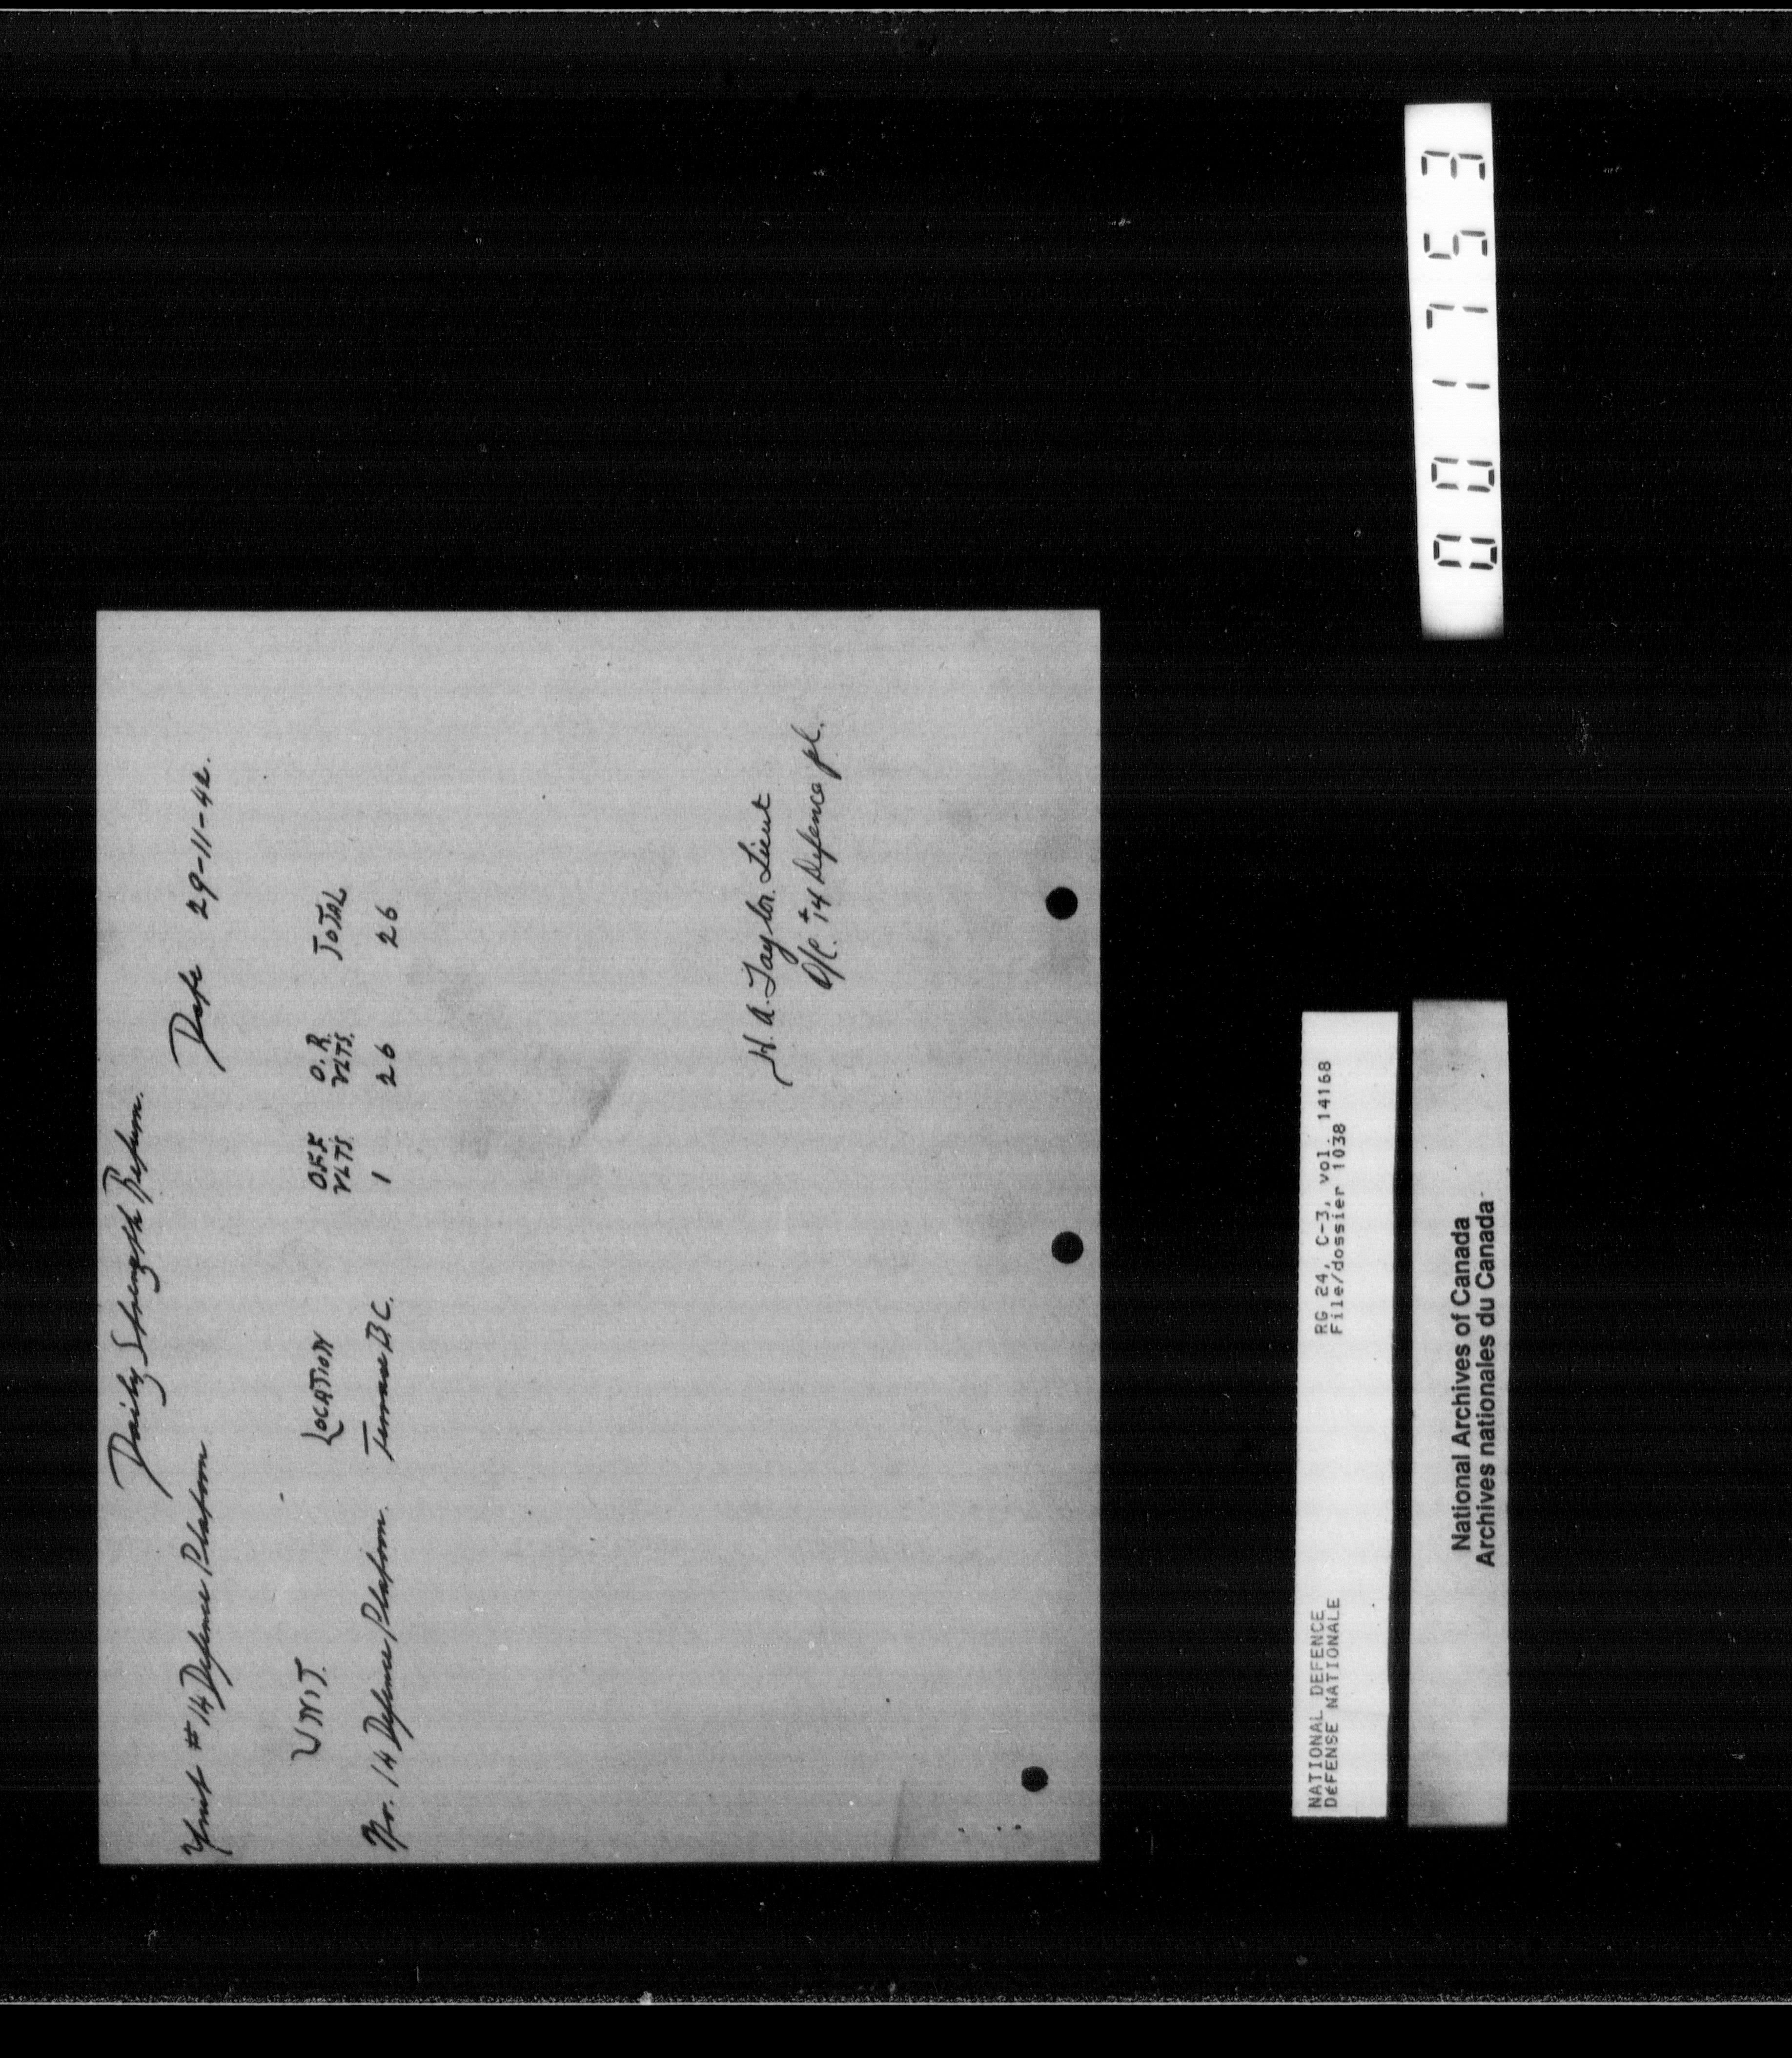 Daily Strength Return.
Unit #14 Defence Platoon Date 29-11-42.
UNIT. LOCATION OFF VLTS. O.R. VLTS. TOTAL
No. 14 Defence Platoon. Terrace B.C. 1 26 26
H. A. Taylor. Lieut
O/C. # 14 Defence pl.
001753
NATIONAL DEFENCE RG 24, C-3, vol. 14168
DéFENSE NATIONALE File/dossier 1038
National Archives of Canada
Archives nationales du Canada